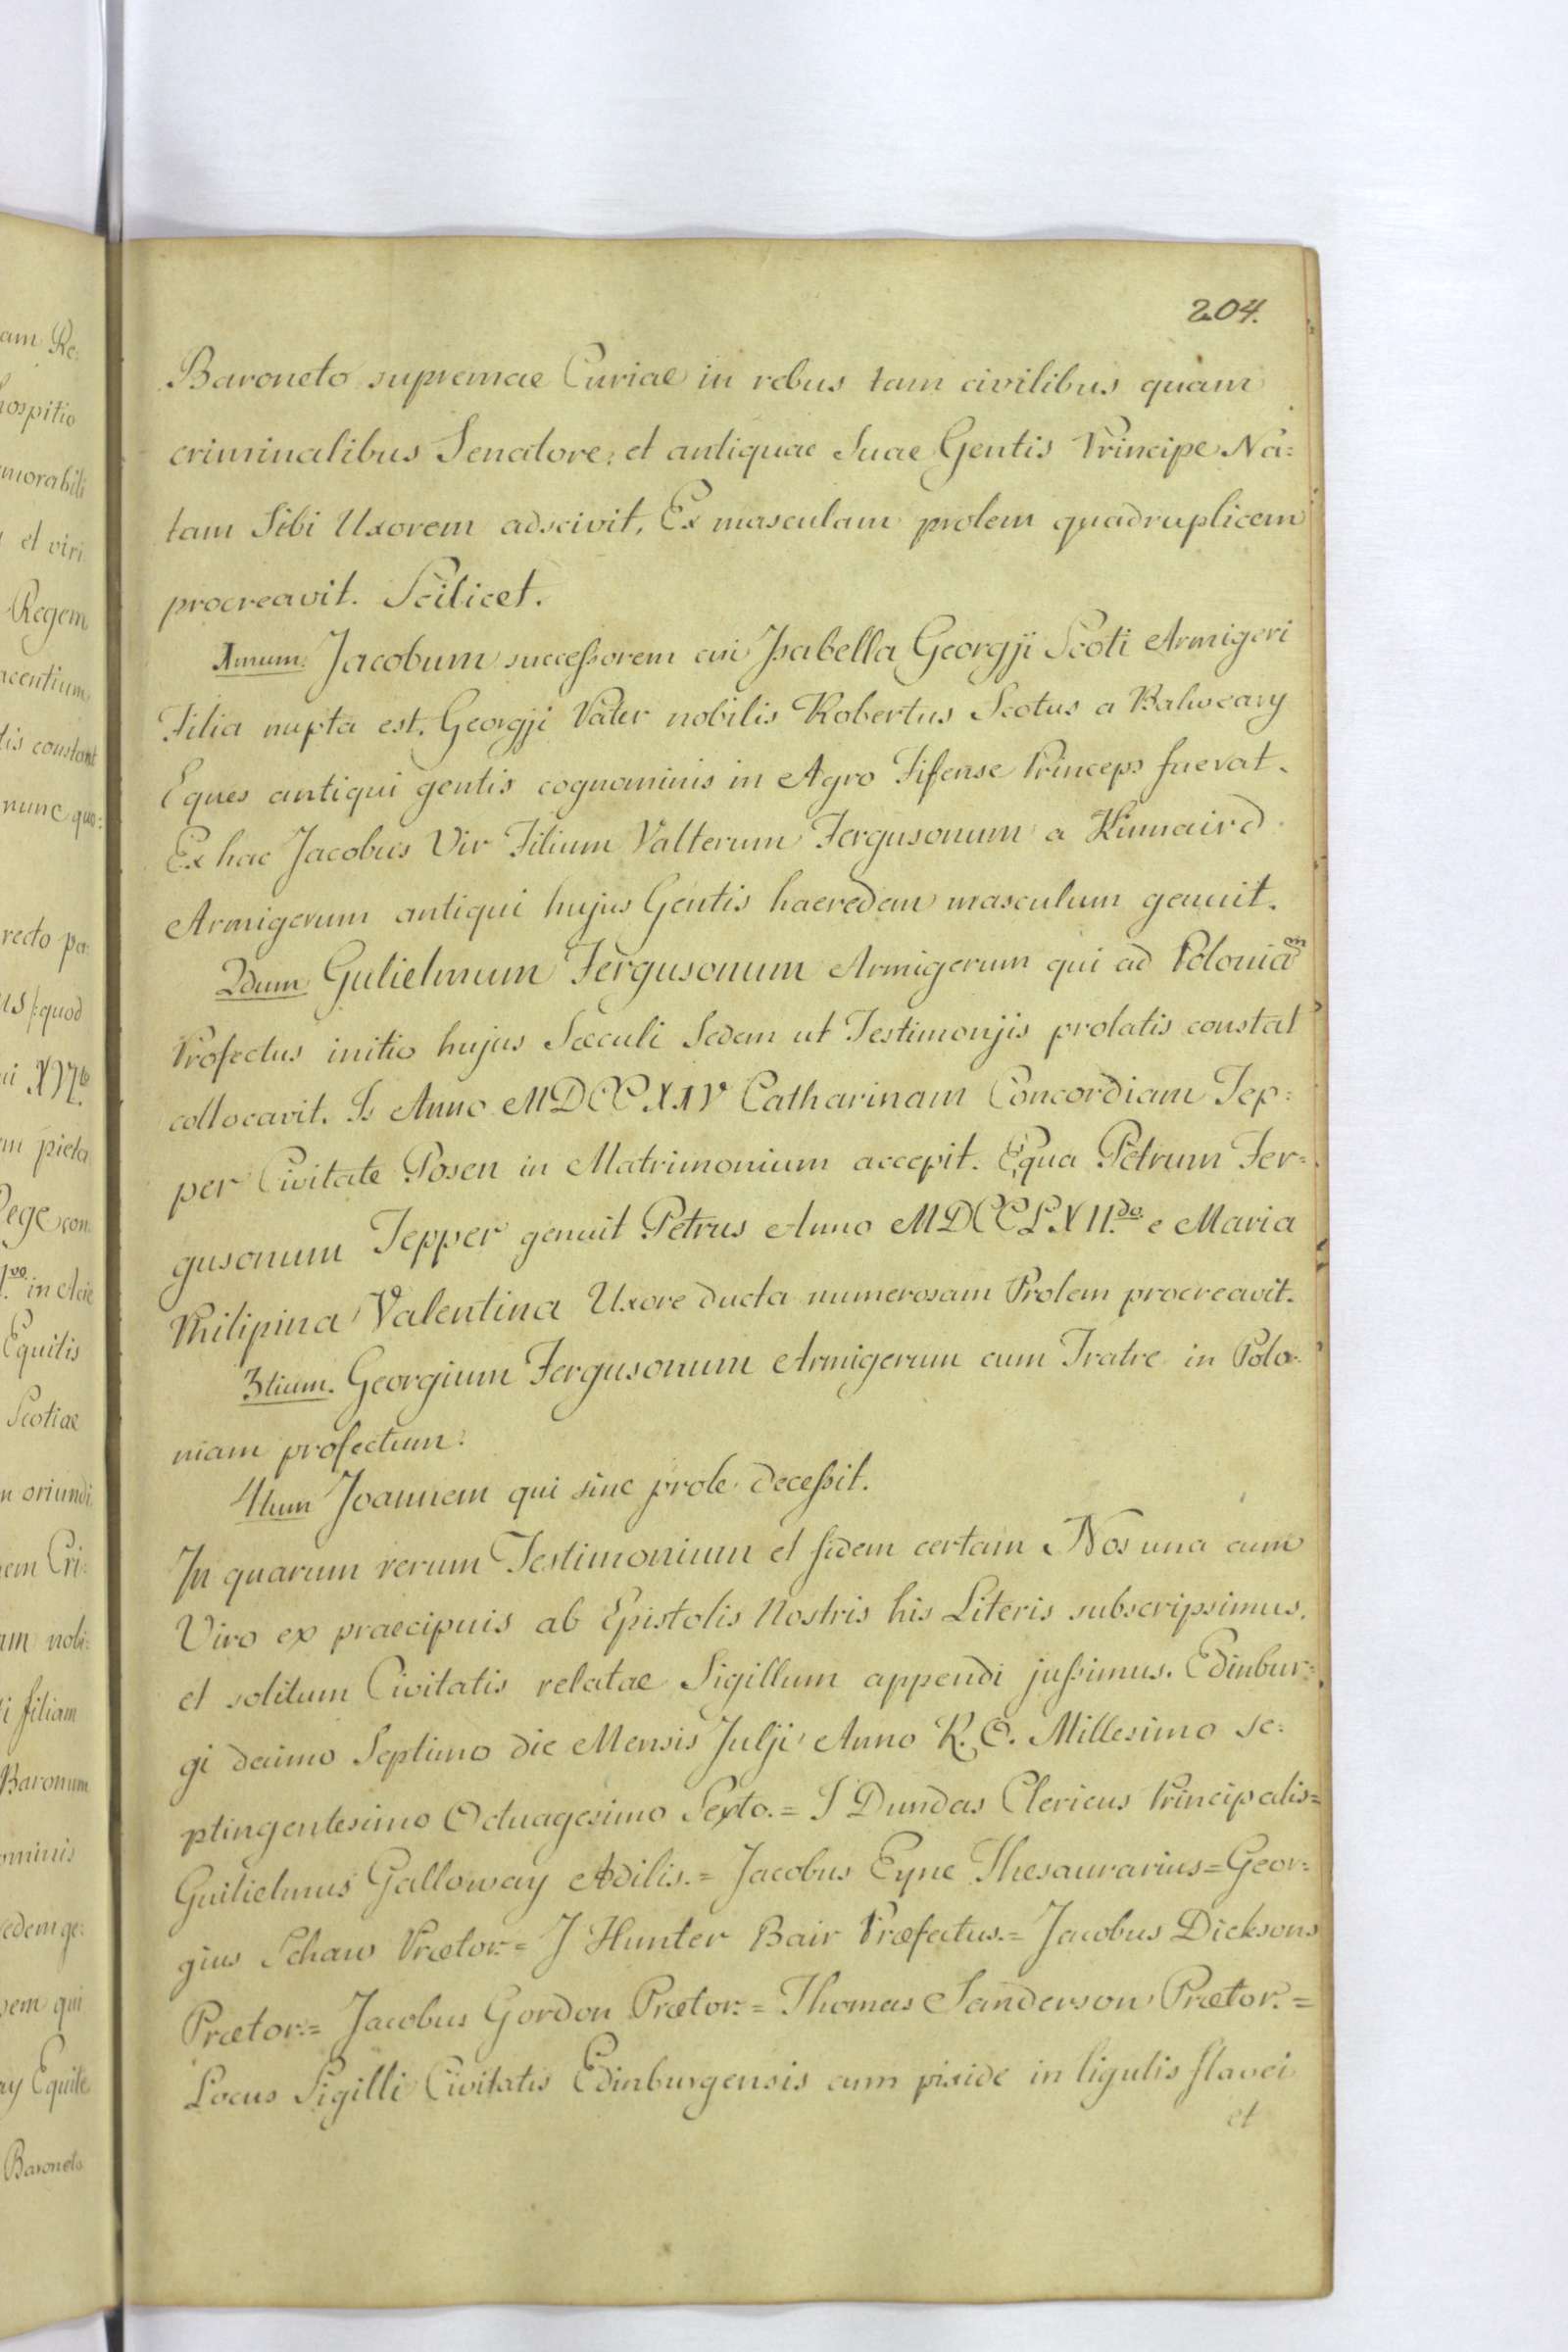 204.
Baroneto supremae Curiae in rebus tam civilibus quam
criminalibus Senatore, et antiquae Suae Gentis Principe Na=
tam Sibi Uxorem adscivit, Ex masculam prolem quadruplicem
procreavit. Scilicet.
1mum. Jacobum successorem cui Isabella Georgji Scoti Armigeri
Filia nupta est. Georgji Pater nobilis Robertus Scotus a Balweary
Eques antiqui gentis cognominis in Agro Fifense Princeps fuerat.
Ex hac Jacobus Vir Filium Valterum Fergusonum a Kinnaird
Armigerum antiqui hujus Gentis haeredem masculum genuit.
2dum Gulielmum Fergusonum Armigerum qui ad Poloniam
Profectus initio hujus Sæculi Sedem ut Testimonjis prolatis constat
collocavit. Is Anno MDCCXXV Catharinam Concordiam Tep=
per Civitate Posen in Matrimonium accepit. E qua Petrum Fer=
gusonum Tepper genuit Petrus Anno MDCCLXII.do e Maria
Philipina Valentina Uxore ducta numerosam Prolem procreavit.
3tium. Georgium Fergusonum Armigerum cum Fratre in Polo=
niam profectum.
4tum Joannem qui sine prole decessit.
In quarum rerum Testimonium et fidem certam Nos una cum
Viro ex praecipuis ab Epistolis Nostris his Literis subscripsimus,
et solitum Civitatis relatae Sigillum appendi jussimus. Edinbur=
gi decimo Septimo die Mensis Julji Anno R. O. Millesimo se=
ptingentesimo Octuagesimo Sexto.= J Dundas Clericus Principalis=
Guilielmus Galloway Ædilis.= Jacobus Eyne Thesaurarius=Geor=
gius Schaw Prætor.= J Hunter Bair Præfectus.= Jacobus Dicksons
Prætor.= Jacobus Gordon Prætor.= Thomas Sanderson Prætor.=
Locus Sigilli Civitatis Edinburgensis cum pixide in ligulis flavei
et